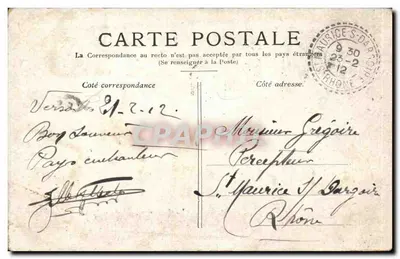 CARTE POSTALE
La Correspondance au recto n'est pas acceptée par tous les pays étrangers
(Se renseigner à la Poste)
Côté correspondance
Côté adresse.
9 30
23-2
12
RHONE
21-2-12
Bon Souvenir
Pays enchanteur
Monsieur Grégoire
Percepteur
St Maurice s/ Dargoire
Rhône